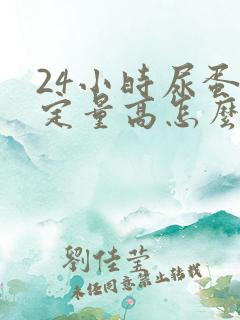 24小時尿蛋
定量高怎麼
劉佳瑩
未經同意禁止轉載